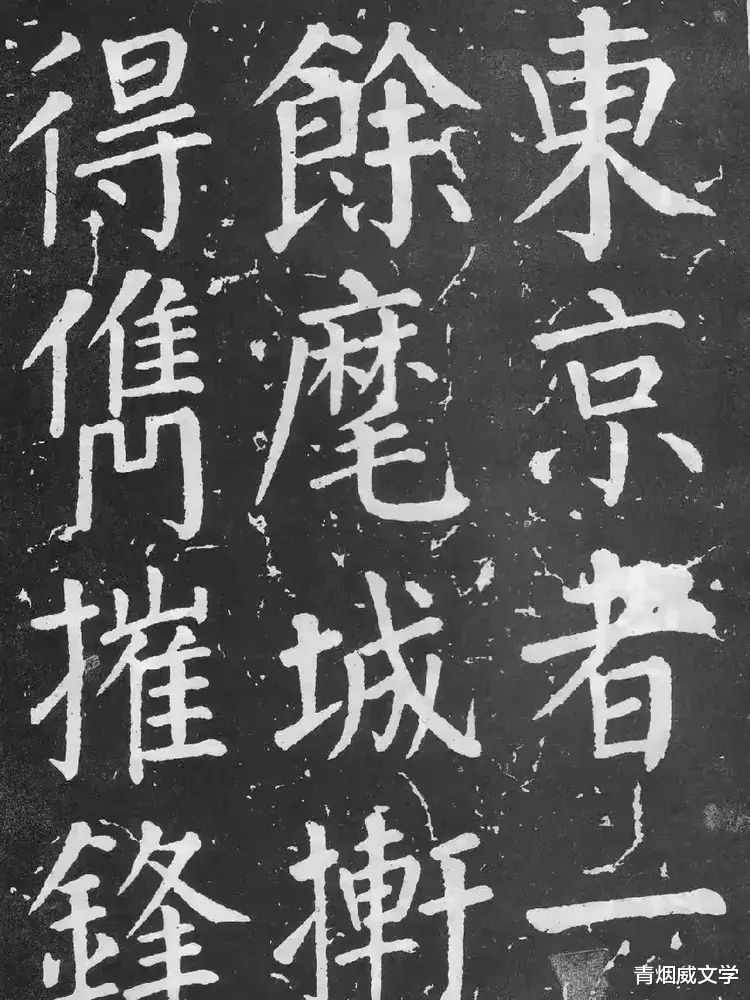 東京者一
餘麾城摲
得儁摧鋒
青烟威文学